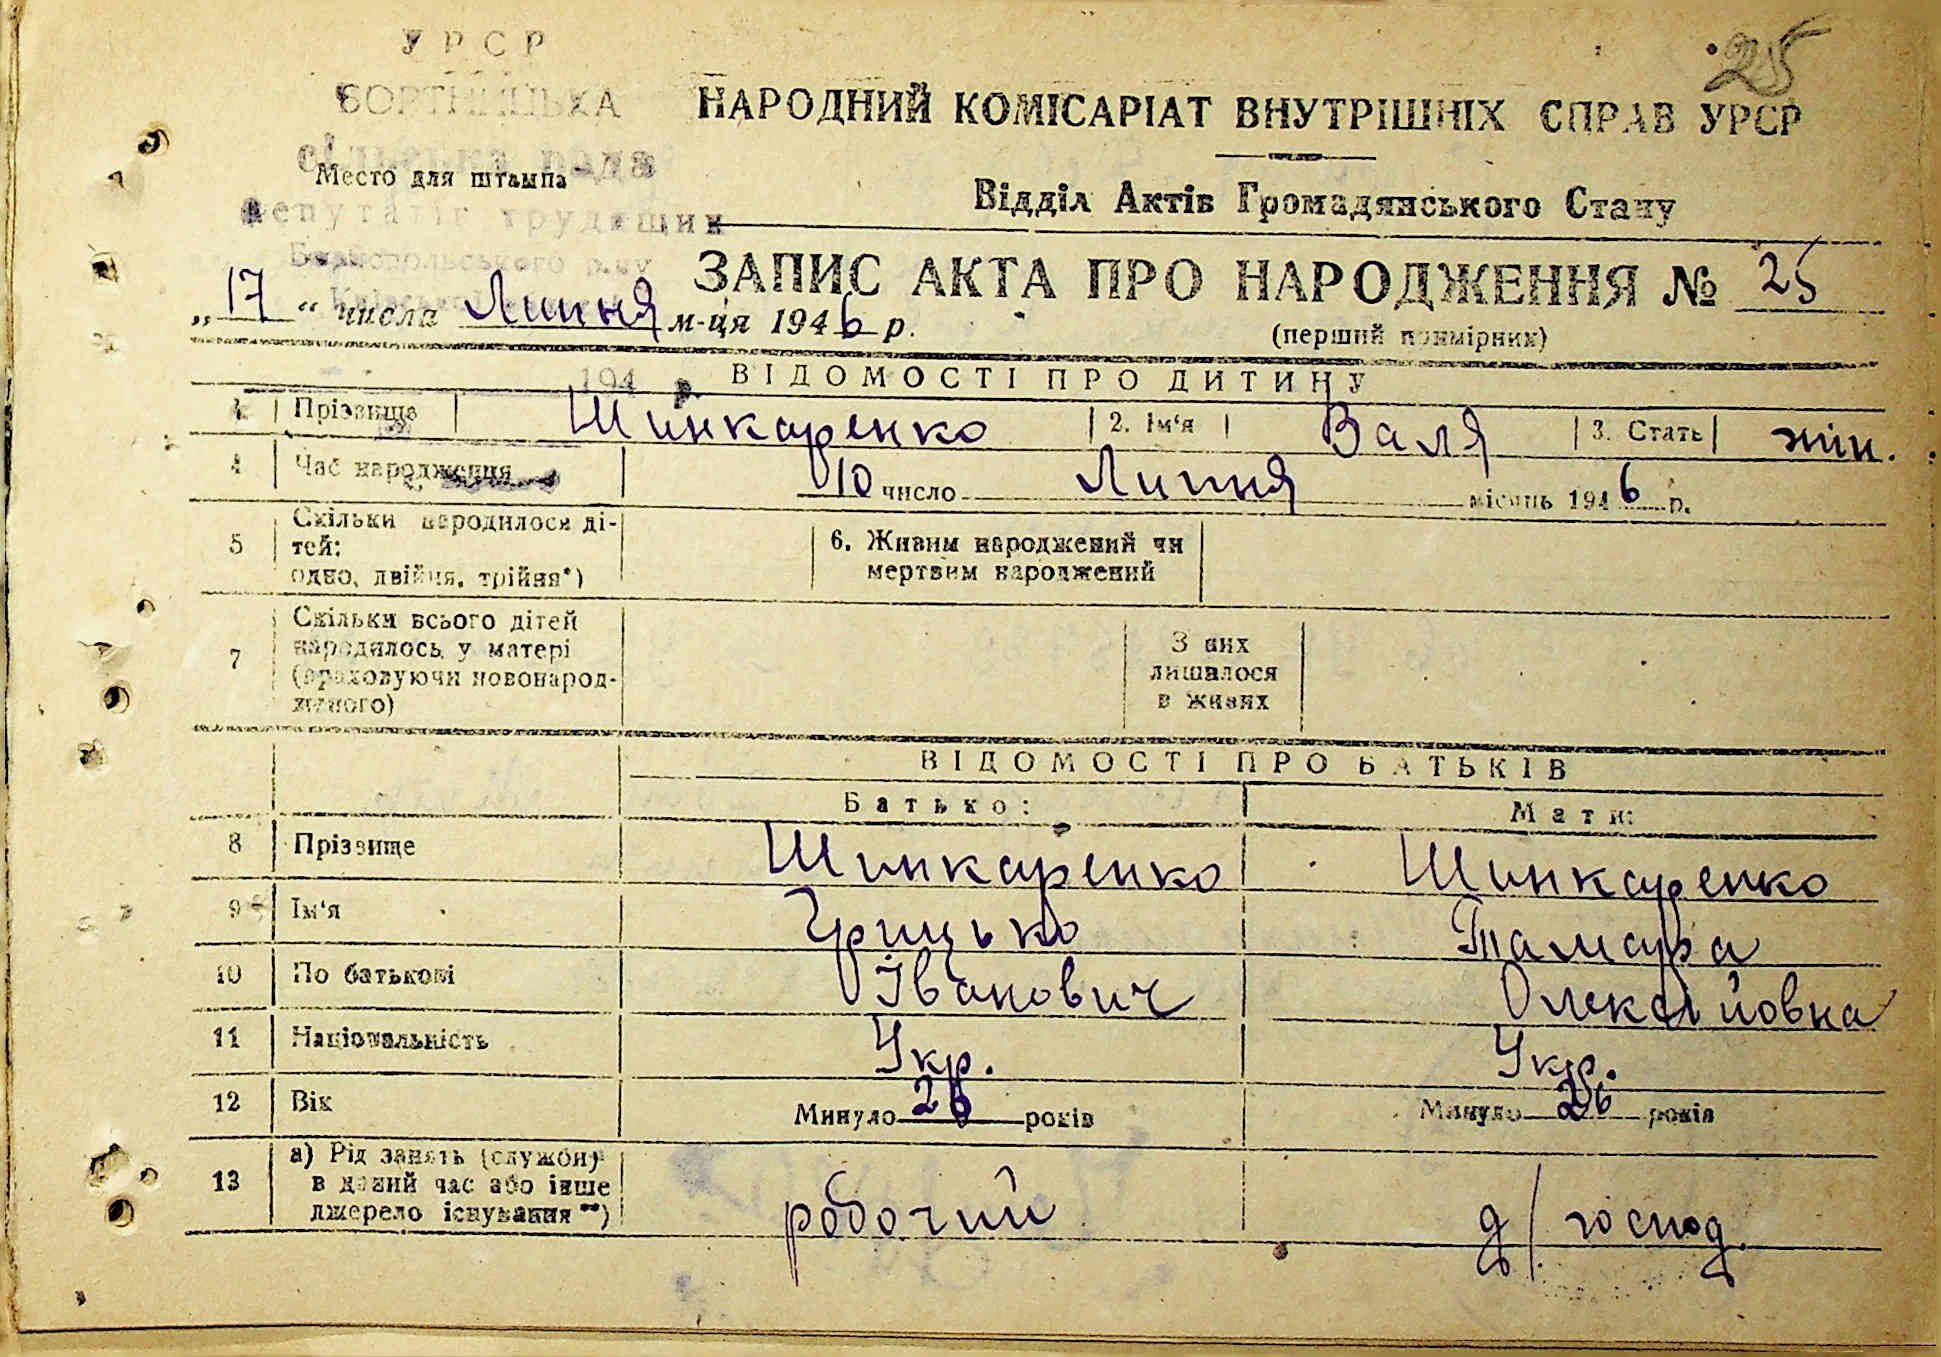 25
УРСР
БОРТНИЦЬКА
сільська рада
депутатів трудящих
Бориспольського р-ну
Место для штампа
НАРОДНИЙ КОМІСАРІАТ ВНУТРІШНІХ СПРАВ УРСР
Відділ Актів Громадянського Стану
ЗАПИС АКТА ПРО НАРОДЖЕННЯ № 25
„17“ числа Липня м-ця 1946 р.
(перший примірник)
194
ВІДОМОСТІ ПРО ДИТИНУ
1 Прізвище Шинкаренко 2. Ім'я Валя 3. Стать жін.
4 Час народження 10 число Липня місяць 1946 р.
5 Скільки народилося ді-
тей:
одно, двійня, трійня*)
6. Живим народжений чи
мертвим народжений
7 Скільки всього дітей
народилось у матері
(враховуючи новонарод-
женого)
З них
лишилося
в живих
ВІДОМОСТІ ПРО БАТЬКІВ
Батько: Мати:
8 Прізвище Шинкаренко Шинкаренко
9 Ім'я Грицько Тамара
10 По батькові Іванович Олексійовна
11 Національність Укр. Укр.
12 Вік Минуло 26 років Минуло 26 років
13 а) Рід занять (служби)
в даний час або інше
джерело існування**)
робочий д/господ.